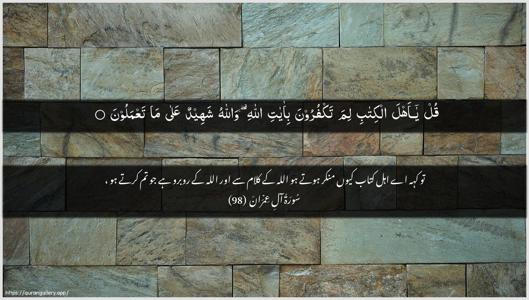 قُلْ يٰۤـاَهْلَ الْكِتٰبِ لِمَ تَكْفُرُوْنَ بِاٰيٰتِ اللّٰهِ ۖ وَاللّٰهُ شَهِيْدٌ عَلٰى مَا تَعْمَلُوْنَ ○
تو کہہ اے اہل کتاب کیوں منکر ہوتے ہو اللہ کے کلام سے اور اللہ کے روبرو ہے جو تم کرتے ہو ،
سُورَۃُ آلِ عِمْرَان (98)
https://qurangallery.app/